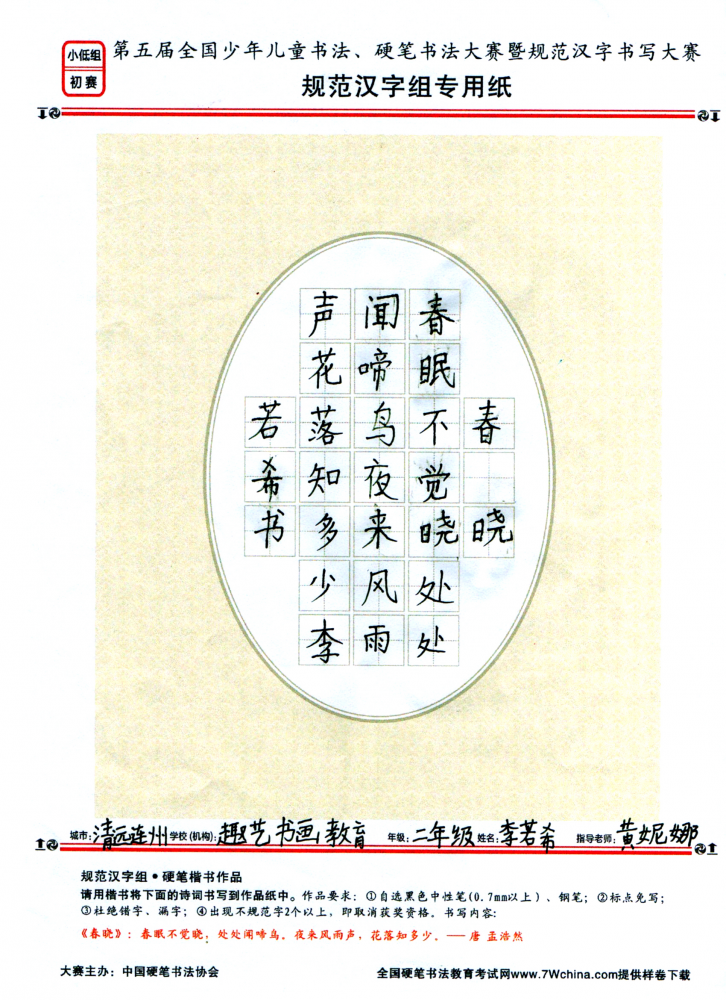 小低组
初赛
第五届全国少年儿童书法、硬笔书法大赛暨规范汉字书写大赛
规范汉字组专用纸
春晓
春眠不觉晓处处
闻啼鸟夜来风雨
声花落知多少李
若希书
城市:清远连州 学校(机构):趣艺书画教育 年级:二年级 姓名:李若希 指导老师:黄妮娜
规范汉字组●硬笔楷书作品
请用楷书将下面的诗词书写到作品纸中。作品要求:①自选黑色中性笔(0.7mm以上)、钢笔;②标点免写;
③杜绝错字、漏字;④出现不规范字2个以上,即取消获奖资格。书写内容:
《春晓》:春眠不觉晓,处处闻啼鸟。夜来风雨声,花落知多少。——唐 孟浩然
大赛主办:中国硬笔书法协会
全国硬笔书法教育考试网www.7Wchina.com提供样卷下载